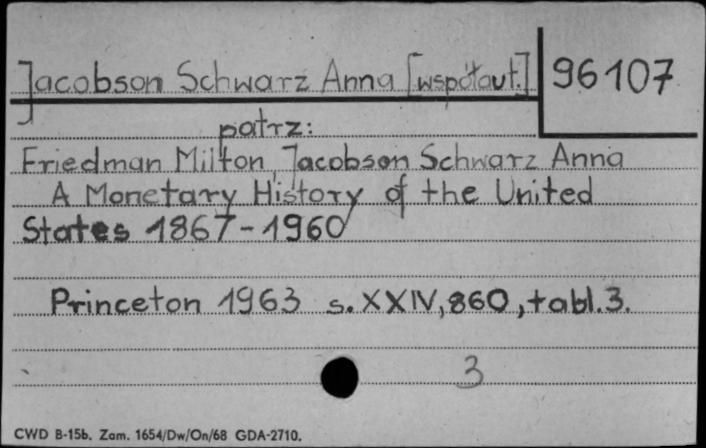 Jacobson Schwarz Anna [współaut.] 96107
patrz:
Friedman Milton, Jacobson Schwarz Anna
A Monetary History of the United
States 1867-1960
Princeton 1963 s. XXIV, 860, tabl. 3.
3
CWD B-15b. Zam. 1654/Dw/On/68 GDA-2710.